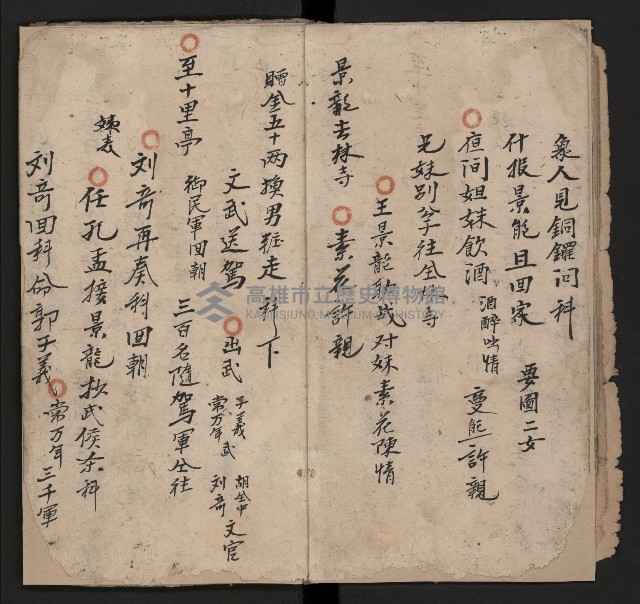 象人見銅鑼问科
什报景能旦回家 要國二女
夜间姐妹飲酒 酒醉吐情 雙能許親
兄妹别 往 寺
王景龍 武对妹素花陳情
景龍 林寺 素花許親
贈金五十两換男 走 下
文武送駕 出武 子義 常万年 武 胡 中 刘奇 文官
至十里亭 御民軍回朝 三百名隨駕軍 往
刘奇再奏科回朝
妹 任孔孟接景龍 武侯 科
刘奇回科 郭子義 常万年 三千軍
高雄市立歷史博物館
KAOHSIUNG MUSEUM OF HISTORY